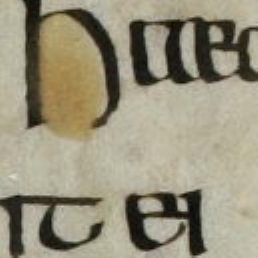 haec
it ei